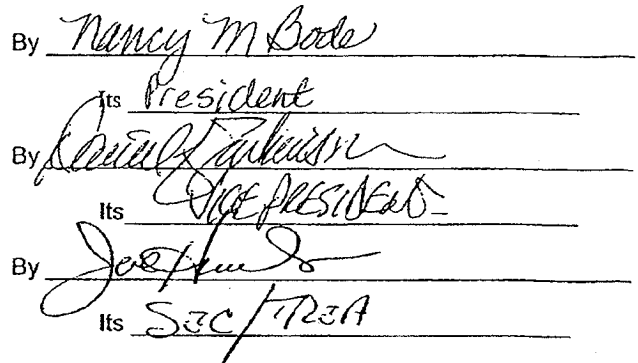 By Nancy M Bode
Its President
By Daniel
Its VICE PRESIDENT
By
Its SEC/TREA